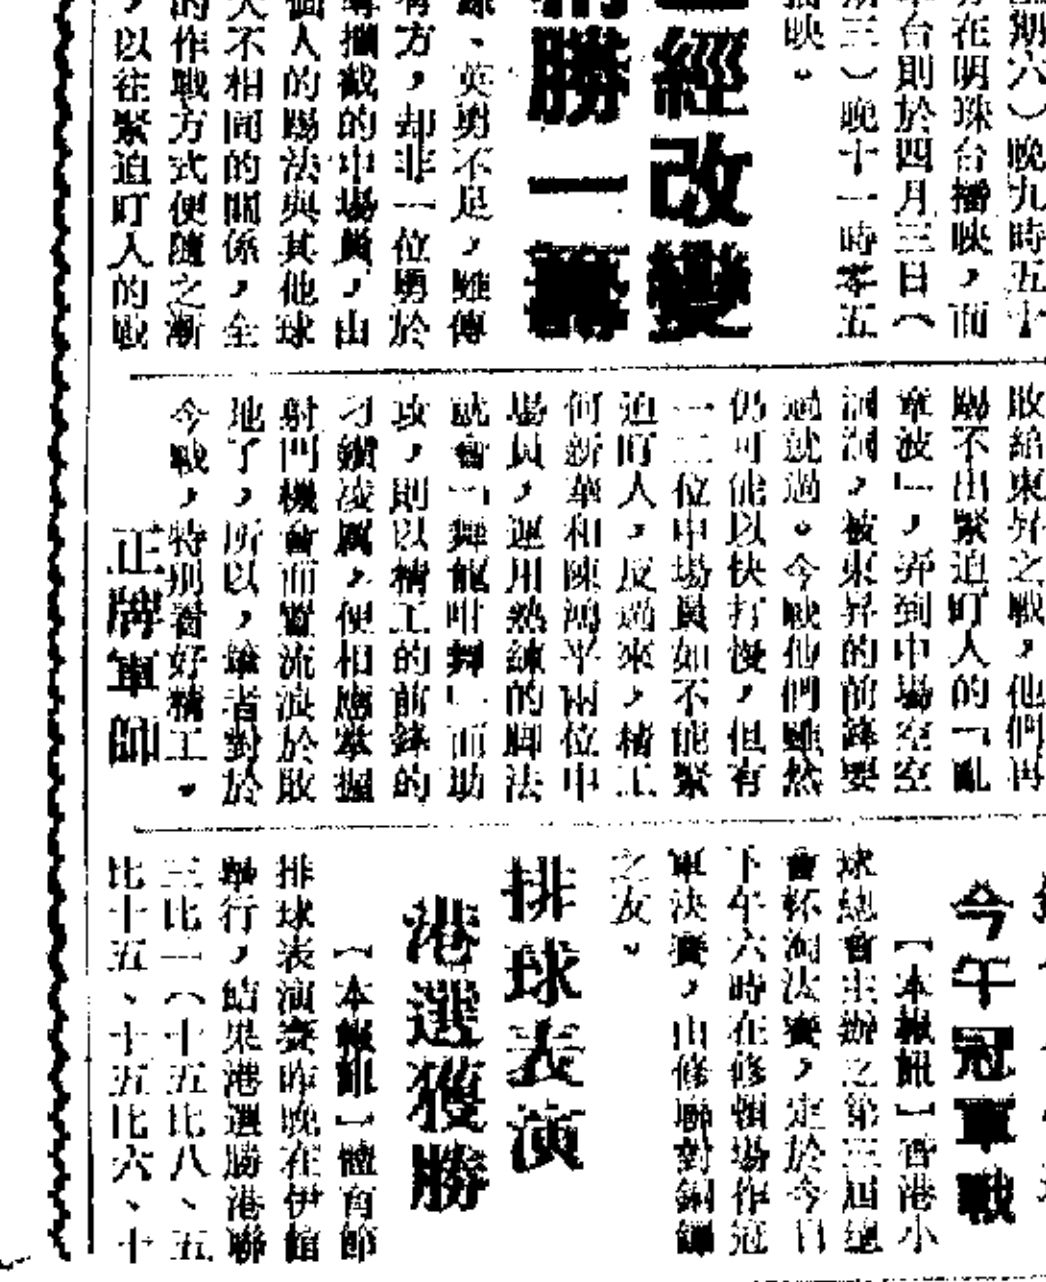 期六）晚九時五十
在明珠台播映，而
台則於四月三日（
三）晚十一時零五
播映。
經改變
勝一籌
、英勇不足，雖傳
有方，却非一位勇於
攔截的中場員，由
個人的踢法與其他球
大不相同的關係，全
的作戰方式便隨之漸
，以往緊迫盯人的戰
敗給東昇之戰，他們再
踢不出緊迫盯人的「亂
章波」，弄到中場空空
洞洞，被東昇的前鋒要
過就過。今戰他們雖然
仍可能以快打慢，但有
一二位中場員如不能緊
迫盯人，反過來，精工
何新華和陳鴻平兩位中
場員，運用熟練的脚法
就會「舞龍咁舞」而助
攻，則以精工的前鋒的
刁鑽凌厲，便相應掌握
射門機會而置流浪於敗
地了，所以，筆者對於
今戰，特別看好精工。
正牌軍師
今午冠軍戰
【本報訊】香港小
球總會主辦之第三屆總
會杯淘汰賽，定於今日
下午六時在修頓場作冠
軍決賽，由修聯對銅鑼
之友。
排球表演
港選獲勝
【本報訊】體育節
排球表演賽昨晚在伊館
舉行，結果港選勝港聯
三比一（十五比八、五
比十五、十五比六、十